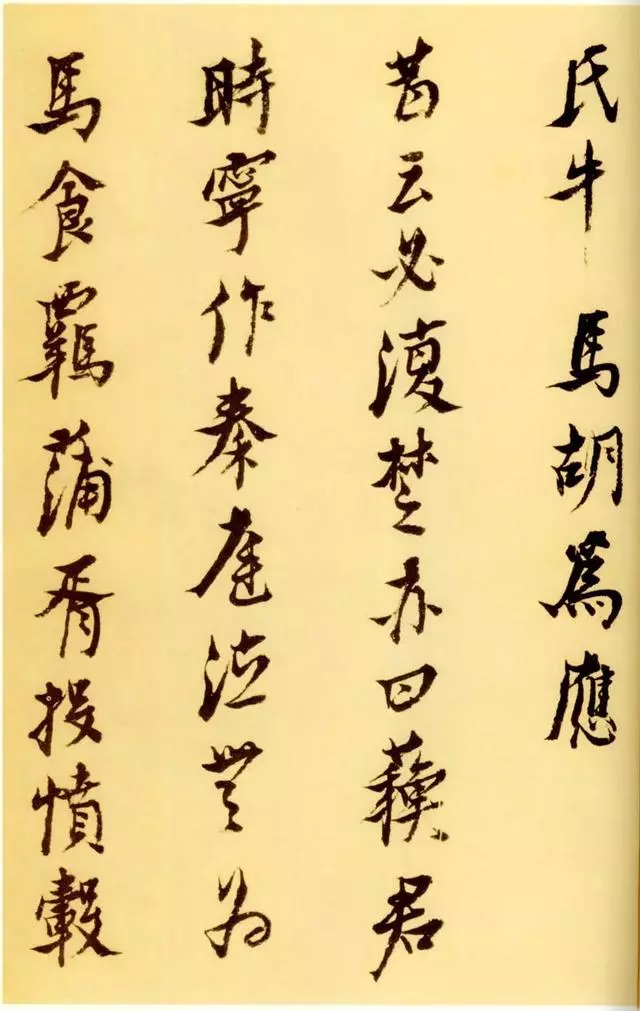 氏牛馬胡爲應
昔云必復楚亦曰蘓君
時寧作秦庭泣無为
馬食羈蒲胥投憤轂